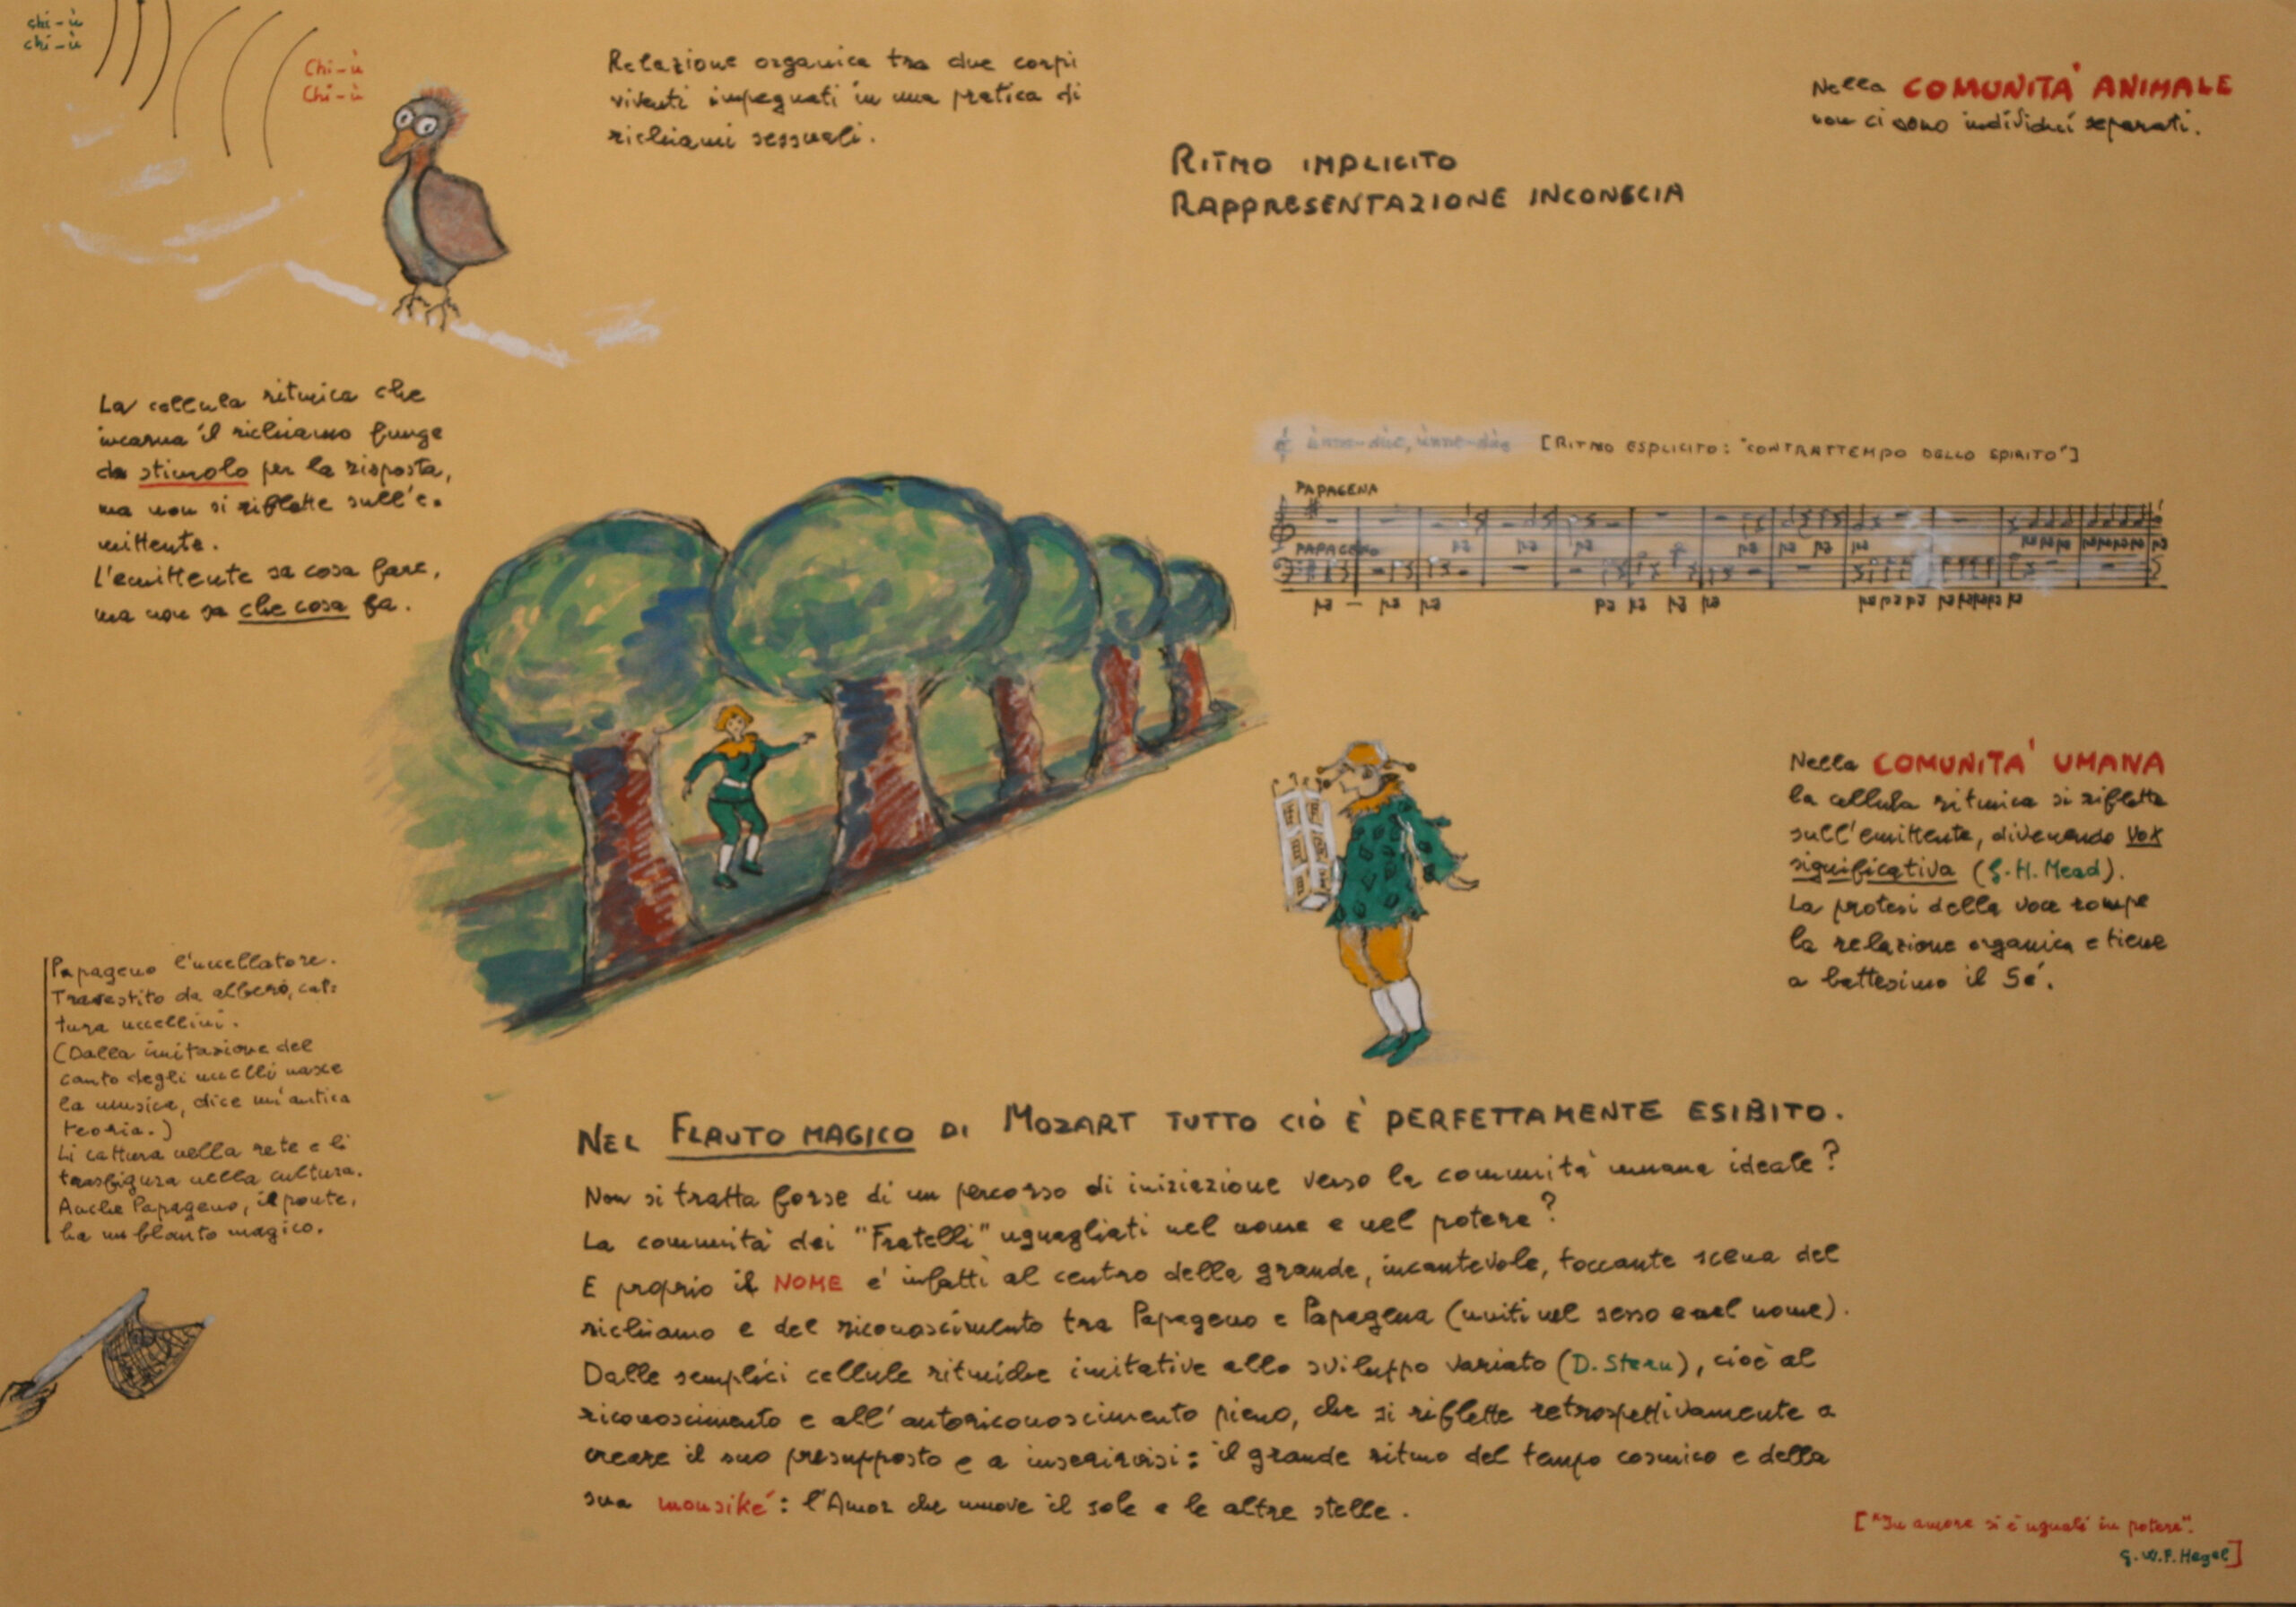 chi-ù
chi-ù
Chi-ù
Chi-ù
Relazione organica tra due corpi
viventi impegnati in una pratica di
richiami sessuali.
RITMO IMPLICITO
RAPPRESENTAZIONE INCONSCIA
Nella COMUNITA' ANIMALE
non ci sono individui separati.
La cellula ritmica che
incarna il richiamo funge
da stimolo per la risposta,
ma non si riflette sull'e-
mittente.
L'emittente sa cosa fare,
ma non sa che cosa fa.
ùnne-dùe, ùnne-dùe [RITMO ESPLICITO: "CONTRATTEMPO DELLO SPIRITO"]
PAPAGENA
pa pa pa pa pa pa pa pa pa pa pa pa pa pa pa pa
PAPAGENO
pa - pa pa pa pa pa pa pa pa pa pa pa pa pa pa
Nella COMUNITA' UMANA
la cellula ritmica si riflette
sull'emittente, divenendo vox
significativa (G.H. Mead).
La protesi della voce rompe
la relazione organica e tiene
a battesimo il Sé.
Papageno l'uccellatore.
Travestito da albero, cat-
tura uccellini.
(Dalla imitazione del
canto degli uccelli nasce
la musica, dice un'antica
teoria.)
Li cattura nella rete e li
trasfigura nella cultura.
Anche Papageno, il ponte,
ha un flauto magico.
NEL FLAUTO MAGICO DI MOZART TUTTO CIÒ È PERFETTAMENTE ESIBITO.
Non si tratta forse di un percorso di iniziazione verso la comunità umana ideale?
La comunità dei "Fratelli" uguagliati nel nome e nel potere?
E proprio il NOME è infatti al centro della grande, incantevole, toccante scena del
richiamo e del riconoscimento tra Papageno e Papagena (uniti nel sesso e nel nome).
Dalle semplici cellule ritmiche imitative allo sviluppo variato (D. Stern), cioè al
riconoscimento e all'autoriconoscimento pieno, che si riflette retrospettivamente a
creare il suo presupposto e a inserirvisi: il grande ritmo del tempo cosmico e della
sua mousiké: l'Amor che move il sole e le altre stelle.
["In amore si è uguali in potere".
G.W.F. Hegel]